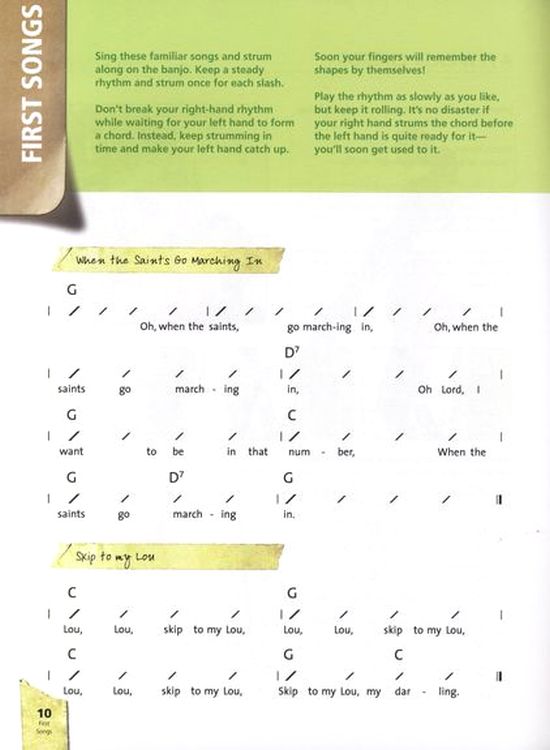 FIRST SONGS
Sing these familiar songs and strum
along on the banjo. Keep a steady
rhythm and strum once for each slash.
Don't break your right-hand rhythm
while waiting for your left hand to form
a chord. Instead, keep strumming in
time and make your left hand catch up.
Soon your fingers will remember the
shapes by themselves!
Play the rhythm as slowly as you like,
but keep it rolling. It's no disaster if
your right hand strums the chord before
the left hand is quite ready for it—
you'll soon get used to it.
When the Saints Go Marching In
G
| / / / / | / / / / | / / / / |
Oh, when the saints, go march-ing in, Oh, when the
D7
| / / / / | / / / / |
saints go march - ing in, Oh Lord, I
G C
| / / / / | / / / / |
want to be in that num - ber, When the
G D7 G
| / / / / | / / / / ||
saints go march - ing in.
Skip to my Lou
C G
| / / / / | / / / / |
Lou, Lou, skip to my Lou, Lou, Lou, skip to my Lou,
C G C
| / / / / | / / / / ||
Lou, Lou, skip to my Lou, Skip to my Lou, my dar - ling.
10
First
Songs